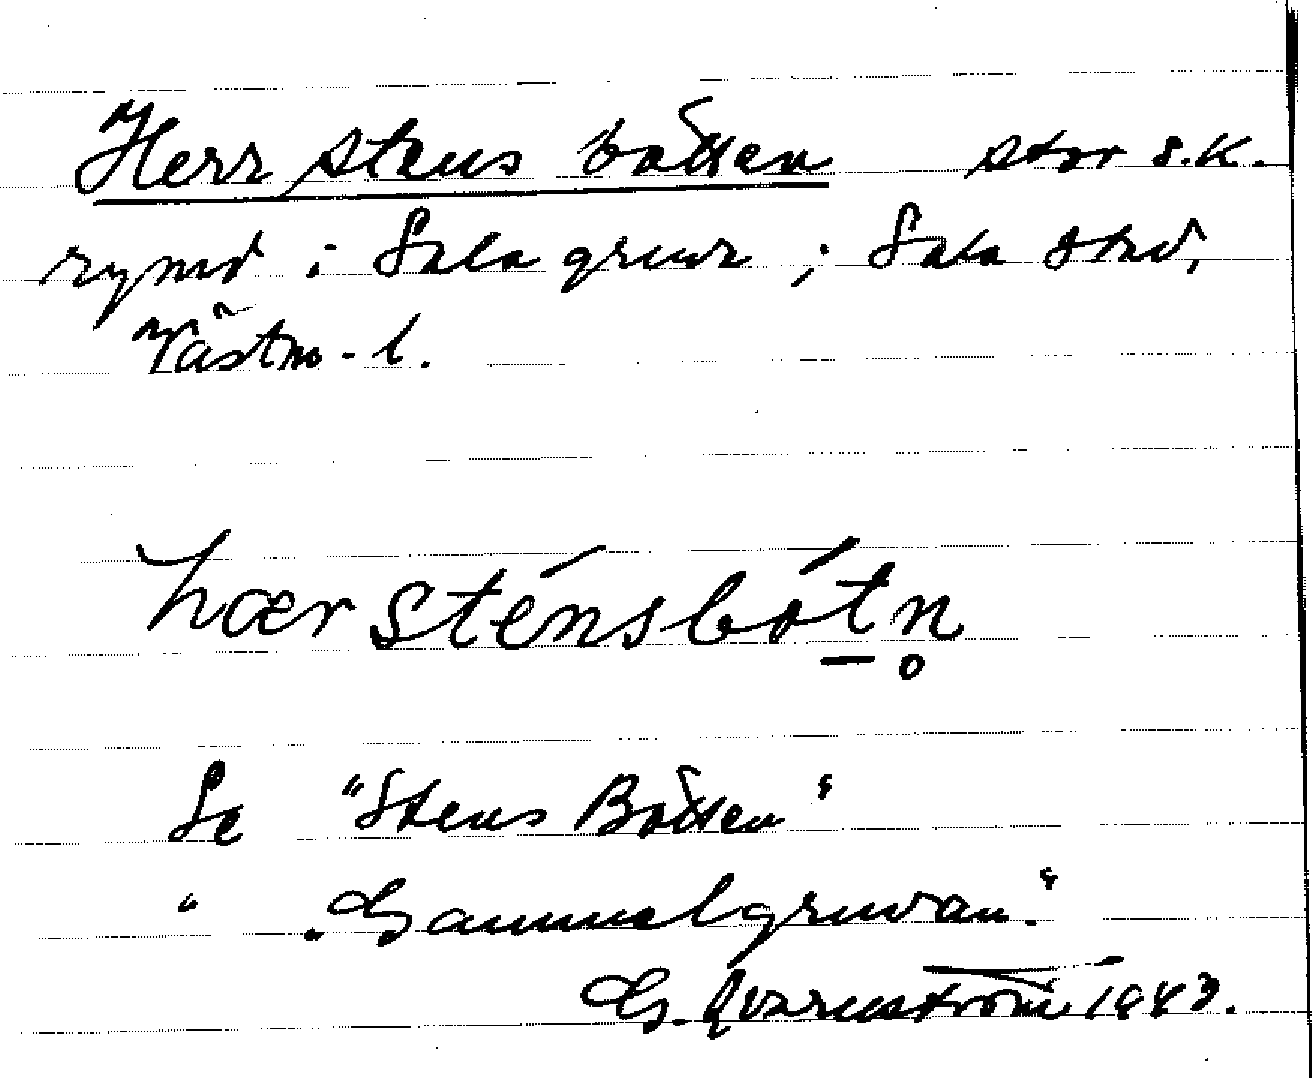 Herr Stens botten stor s.k.
rymd i Sala gruva; Sala stad,
Västm-l.
hærsténsbótn̥
Se "Stens Botten"
" "Gammelgruvan."
G. Qvarnström 1943.